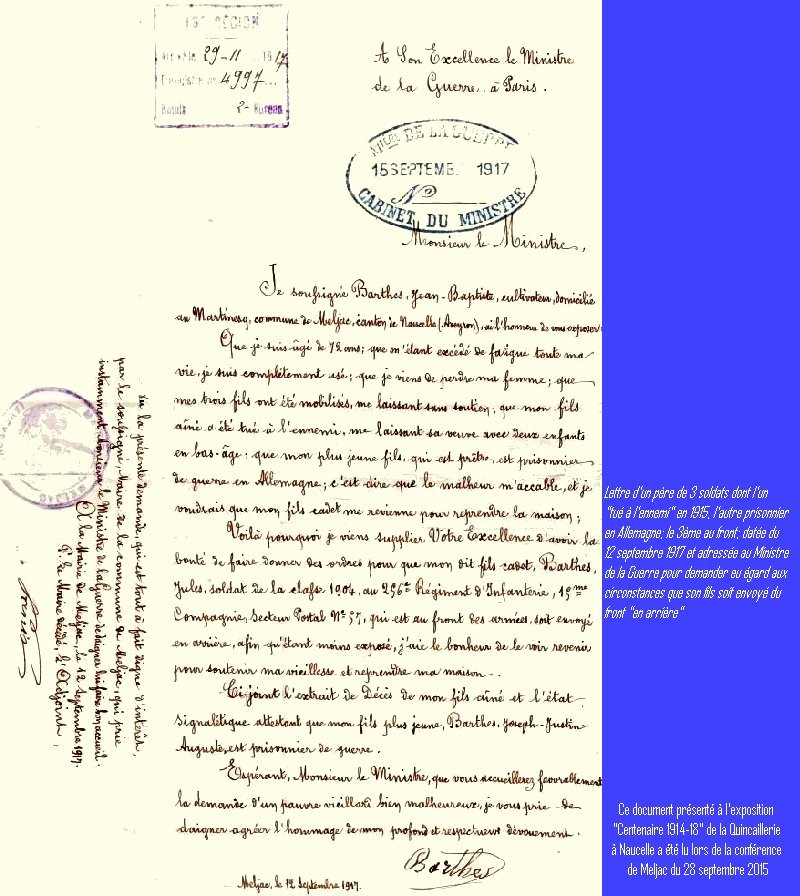 16e RÉGION
29-11 1917
4997
2e Bureau
A Son Excellence le Ministre
de la Guerre, à Paris.
DE LA GUERRE
15 SEPTEMB. 1917
No
CABINET DU MINISTRE
Monsieur le Ministre,
Je soussigné Barthes, Jean-Baptiste, cultivateur, domicilié
au Martinesq, commune de Meljac, canton de Naucelle (Aveyron), ai l'honneur de vous exposer:
Que je suis âgé de 72 ans; que m'étant excédé de fatigue toute ma
vie, je suis complètement usé; que je viens de perdre ma femme; que
mes trois fils ont été mobilisés, me laissant sans soutien; que mon fils
aîné a été tué à l'ennemi, me laissant sa veuve avec deux enfants
en bas-âge; que mon plus jeune fils, qui est prêtre, est prisonnier
de guerre en Allemagne; c'est dire que le malheur m'accable, et je
voudrais que mon fils cadet me revienne pour reprendre la maison;
Voilà pourquoi je viens supplier Votre Excellence d'avoir la
bonté de faire donner des ordres pour que mon dit fils cadet, Barthes,
Jules, soldat de la classe 1904, au 256e Régiment d'Infanterie, 19me
Compagnie, Secteur Postal No 57, qui est au front des armées, soit envoyé
en arrière, afin qu'étant moins exposé, j'aie le bonheur de le voir revenir
pour soutenir ma vieillesse et reprendre ma maison.
Ci joint l'extrait de Décès de mon fils aîné et l'état
signalétique attestant que mon fils plus jeune, Barthes, Joseph-Justin
Auguste, est prisonnier de guerre.
Espérant, Monsieur le Ministre, que vous accueillerez favorablement
la demande d'un pauvre vieillard bien malheureux, je vous prie de
daigner agréer l'hommage de mon profond et respectueux dévouement.
Barthes
Meljac, le 12 Septembre 1917.
Vu la présente demande, qui est tout à fait digne d'intérêt,
par le soussigné, Maire de la commune de Meljac, qui prie
instamment Monsieur le Ministre de la Guerre de daigner lui faire bon accueil.
A la Mairie de Meljac, le 12 septembre 1917.
P. le Maire décédé, l'Adjoint,
MELJAC
Lettre d'un père de 3 soldats dont l'un
"tué à l'ennemi" en 1915, l'autre prisonnier
en Allemagne; le 3ème au front, datée du
12 septembre 1917 et adressée au Ministre
de la Guerre pour demander eu égard aux
circonstances que son fils soit envoyé du
front "en arrière"
Ce document présenté à l'exposition
"Centenaire 1914-18" de la Quincaillerie
à Naucelle a été lu lors de la conférence
de Meljac du 28 septembre 2015